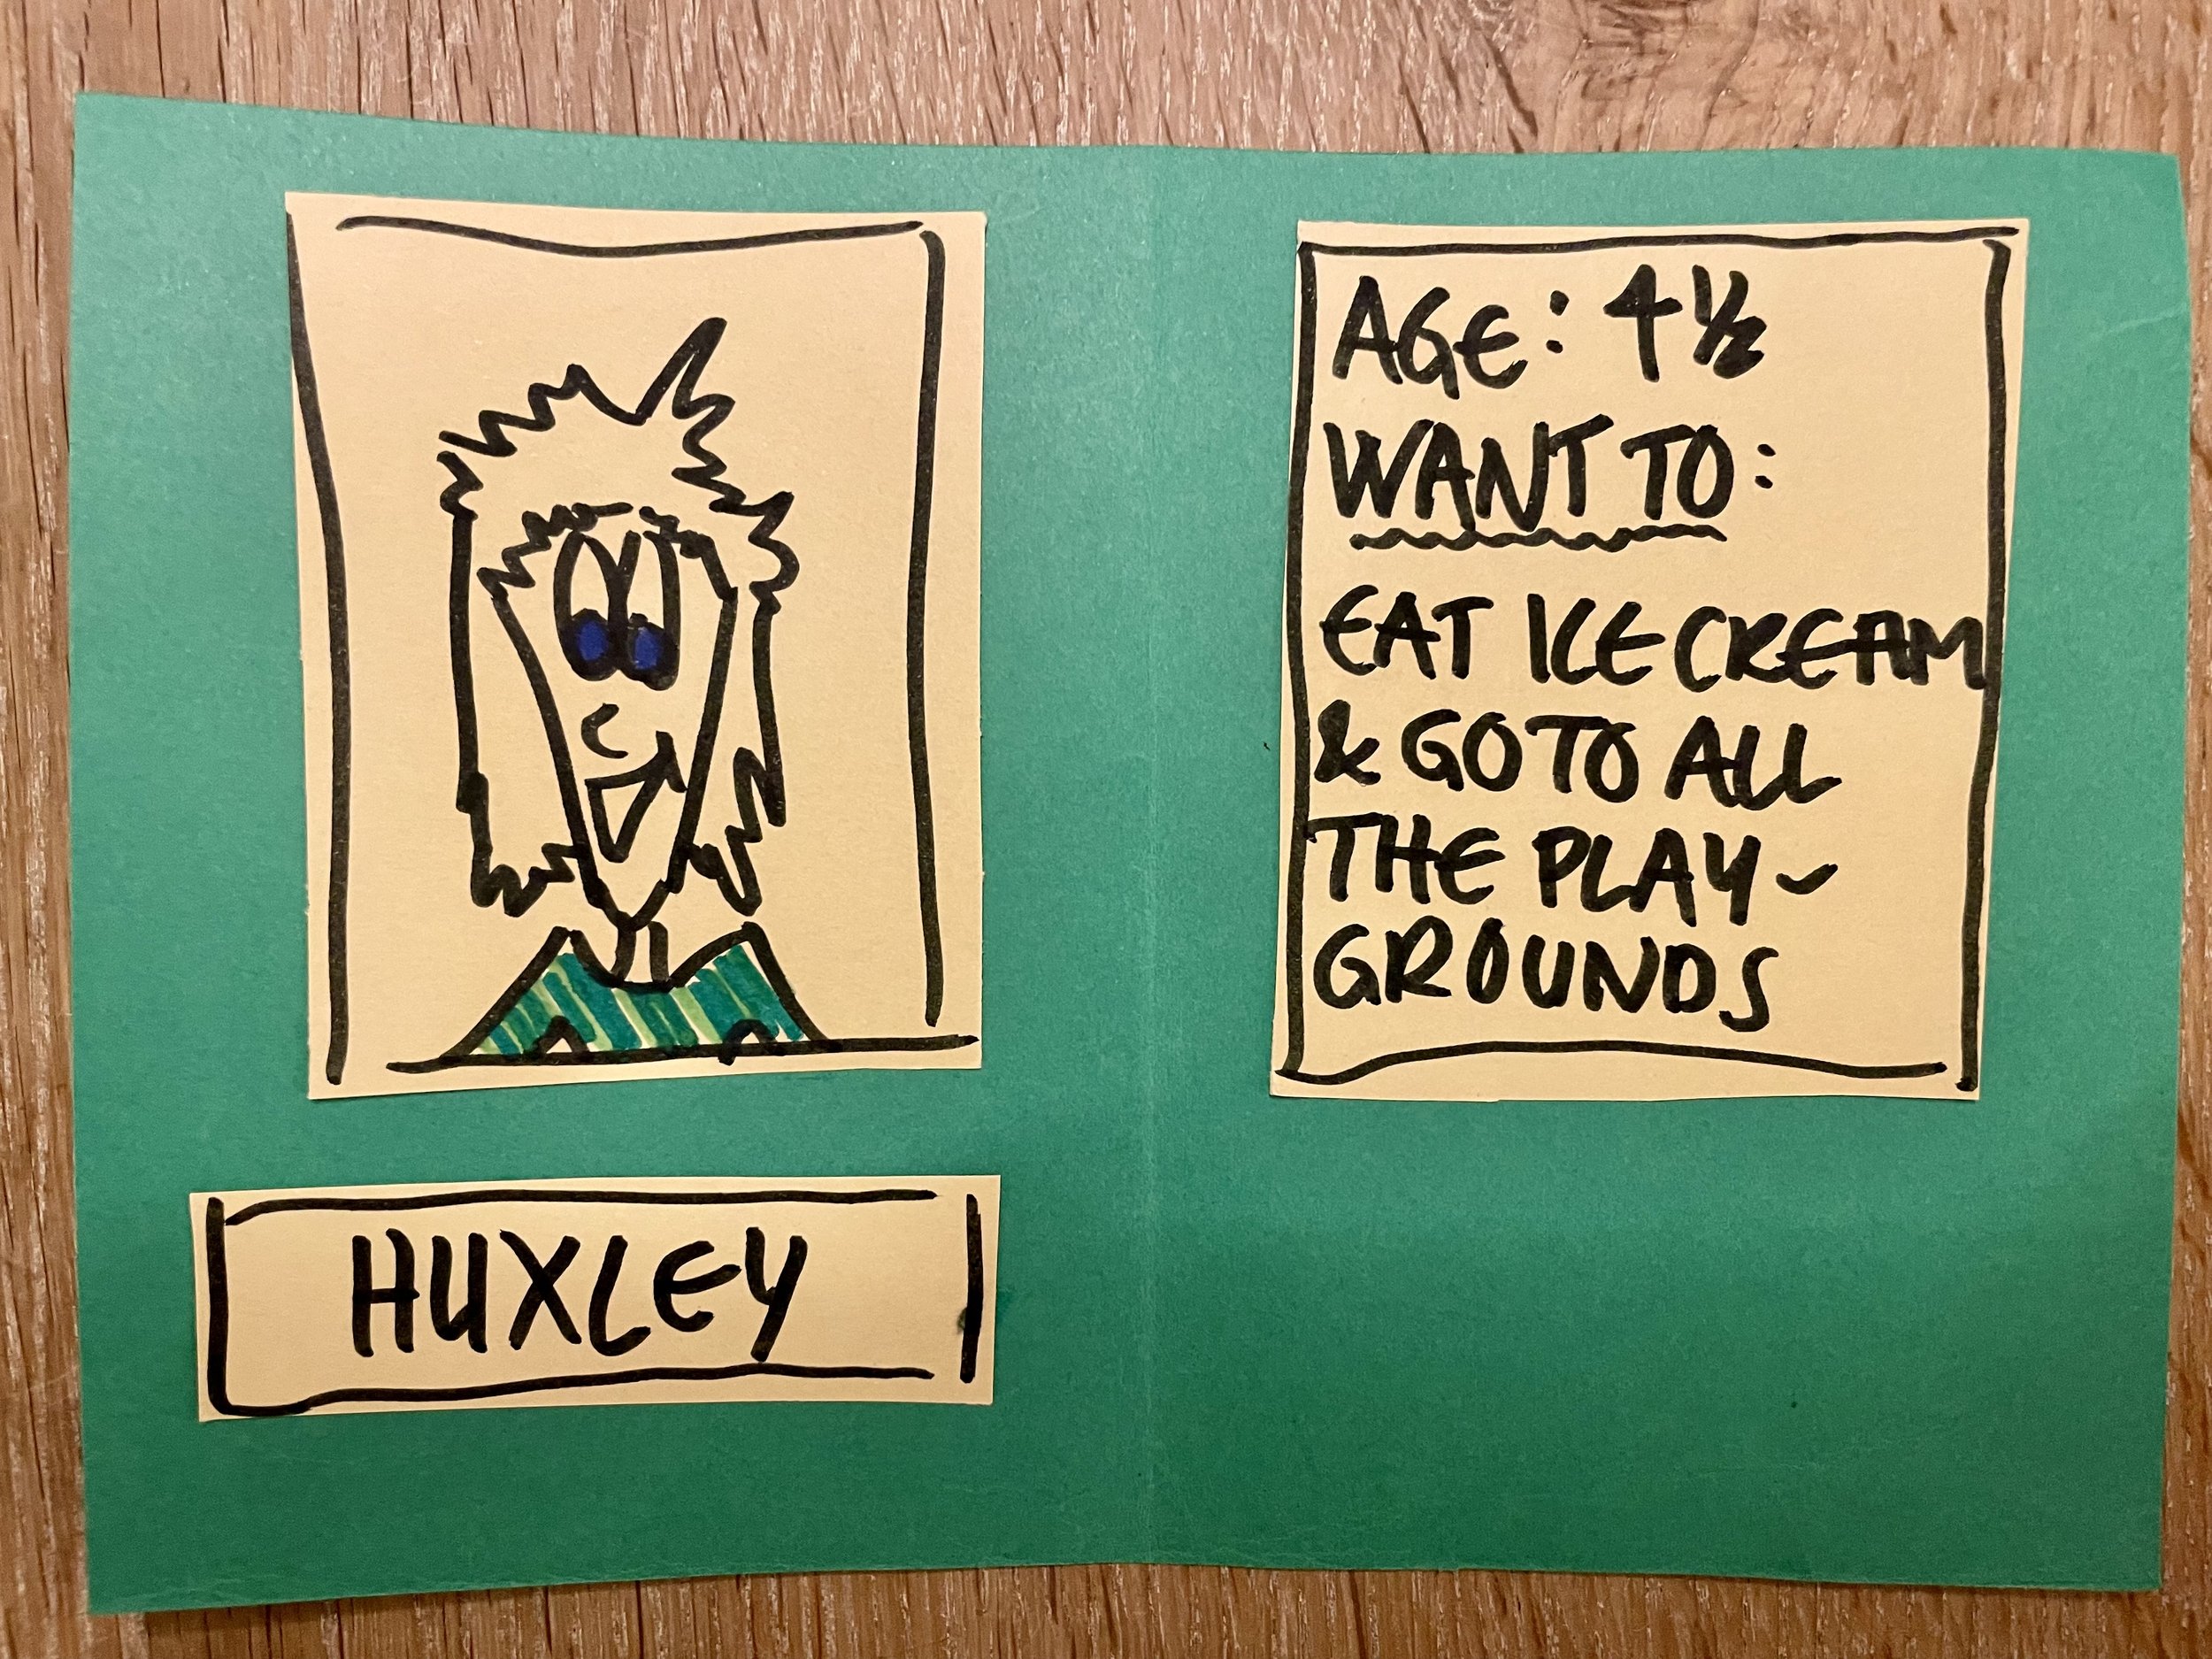 HUXLEY
AGE: 4 ½
WANT TO:
EAT ICE CREAM
& GO TO ALL
THE PLAY-
GROUNDS